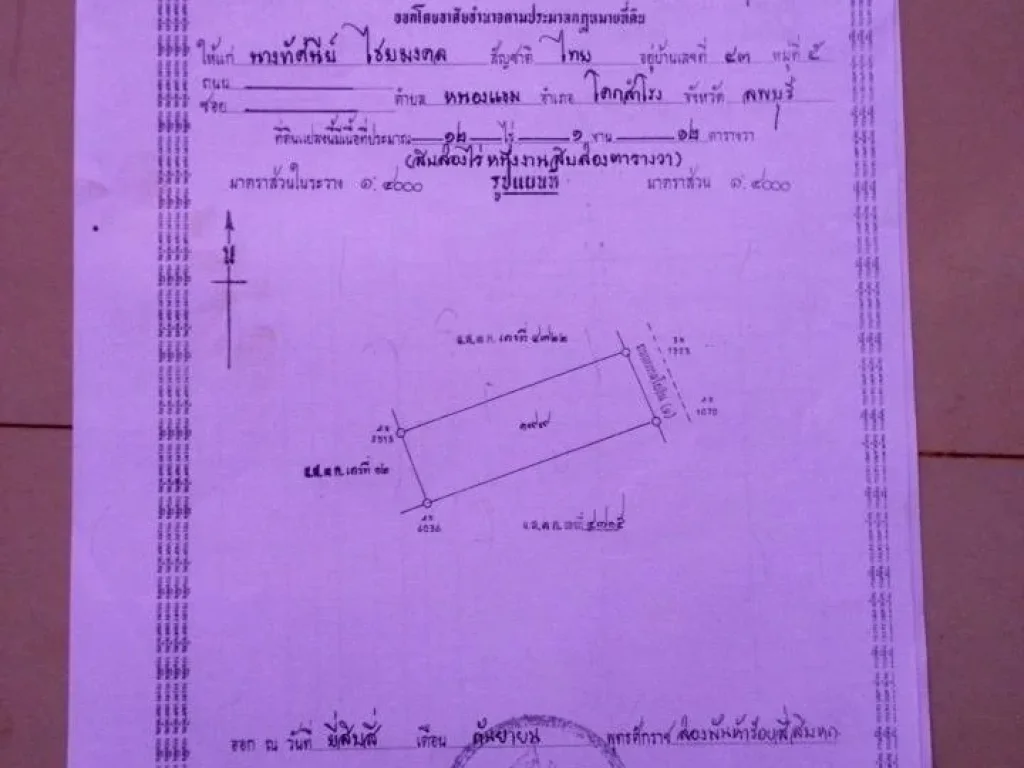 ออกโดยอาศัยอำนาจตามประมวลกฎหมายที่ดิน
ให้แก่ นางทัศนีย์ ไชยมงคล สัญชาติ ไทย อยู่บ้านเลขที่ ๔๓ หมู่ที่ ๕
ถนน
ซอย ตำบล หนองแขม อำเภอ โคกสำโรง จังหวัด ลพบุรี
ที่ดินแปลงนี้มีเนื้อที่ประมาณ ๑๒ ไร่ ๑ งาน ๑๒ ตารางวา
(สิบสองไร่หนึ่งงานสิบสองตารางวา)
มาตราส่วนในระวาง ๑:๔๐๐๐ รูปแผนที่ มาตราส่วน ๑:๔๐๐๐
น
น.ส.๓ ก. เลขที่ ๔๗๒๒
๑๙๙
7373
1070
2513
น.ส.๓ ก. เลขที่ ๑๒
6036
น.ส.๓ ก. เลขที่ ๔๗๑๕
ออก ณ วันที่ ยี่สิบสี่ เดือน กันยายน พุทธศักราช สองพันห้าร้อยสี่สิบหก